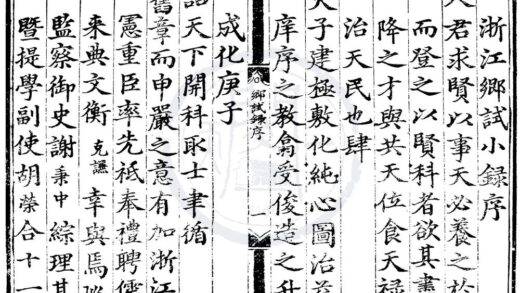 浙江鄉試小録序
人君求賢以事天必養之於
而登之以賢科者欲其
降之才與共天位食天禄
治天民也肆
天子建極敷化純心圖治
庠序之教翕受俊造之升
鄉試録序
一
成化庚子
詔天下開科取士聿循
舊章而申嚴之意有加浙江
憲重臣率先祗奉禮聘儒
来典文衡克謙幸與焉
監察御史謝秉中綜理其
暨提學副使胡榮合十一